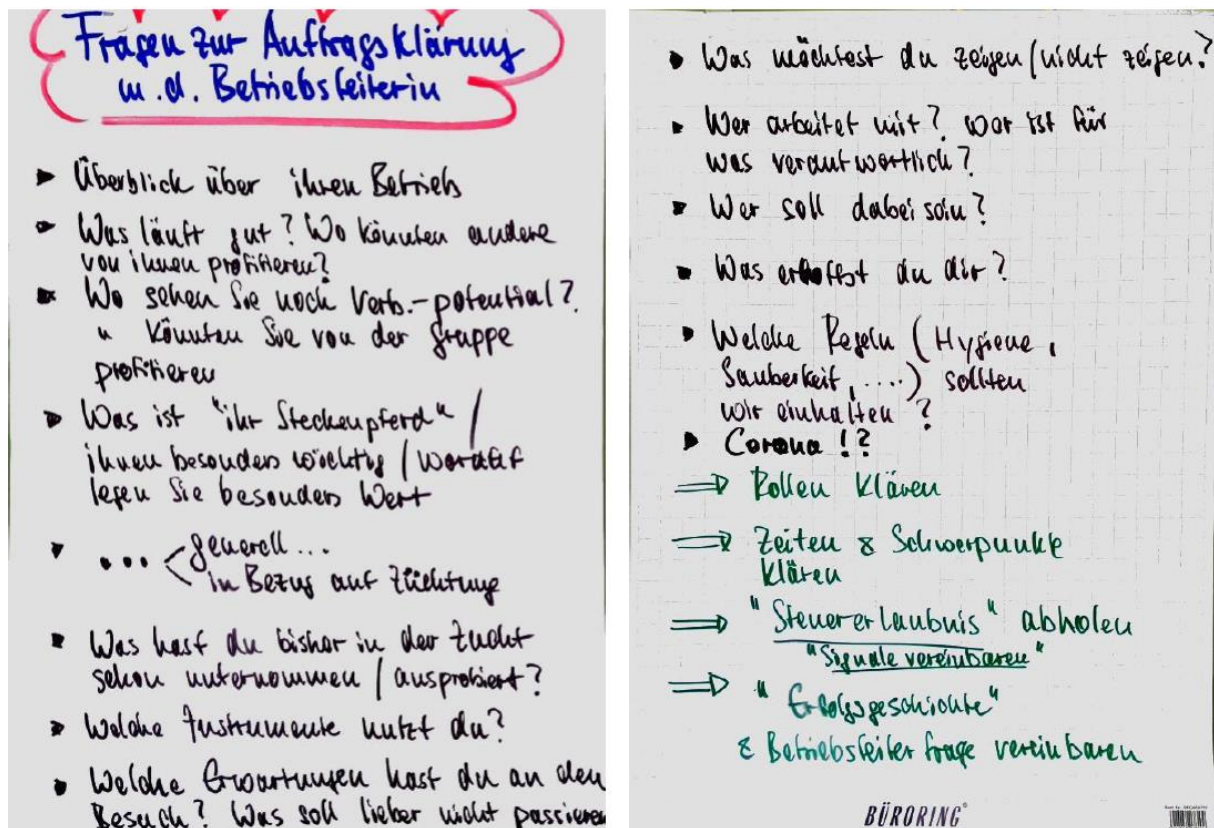 Fragen zur Auftragsklärung
m.d. Betriebsleiterin
Überblick über ihren Betrieb
Was läuft gut? Wo könnten andere
von ihnen profitieren?
Wo sehen Sie noch Verb.-potential?
" könnten Sie von der Gruppe
profitieren
Was ist "ihr Steckenpferd" /
ihnen besonders wichtig / worauf
legen Sie besonders Wert
... < generell...
in Bezug auf Züchtung
Was hast du bisher in der Zucht
schon unternommen / ausprobiert?
Welche Instrumente nutzt du?
Welche Erwartungen hast du an den
Besuch? Was soll lieber nicht passieren
Was möchtest du zeigen / nicht zeigen?
Wer arbeitet mit? wer ist für
was verantwortlich?
Wer soll dabei sein?
Was erhoffst du dir?
Welche Regeln (Hygiene,
Sauberkeit, ....) sollten
wir einhalten?
Corona!?
⇒ Rollen klären
⇒ Zeiten & Schwerpunkte
klären
⇒ "Steuererlaubnis" abholen
"Signale vereinbaren"
⇒ "Erfolgsgeschichte"
& Betriebsleiterfrage vereinbaren
BÜRORING®